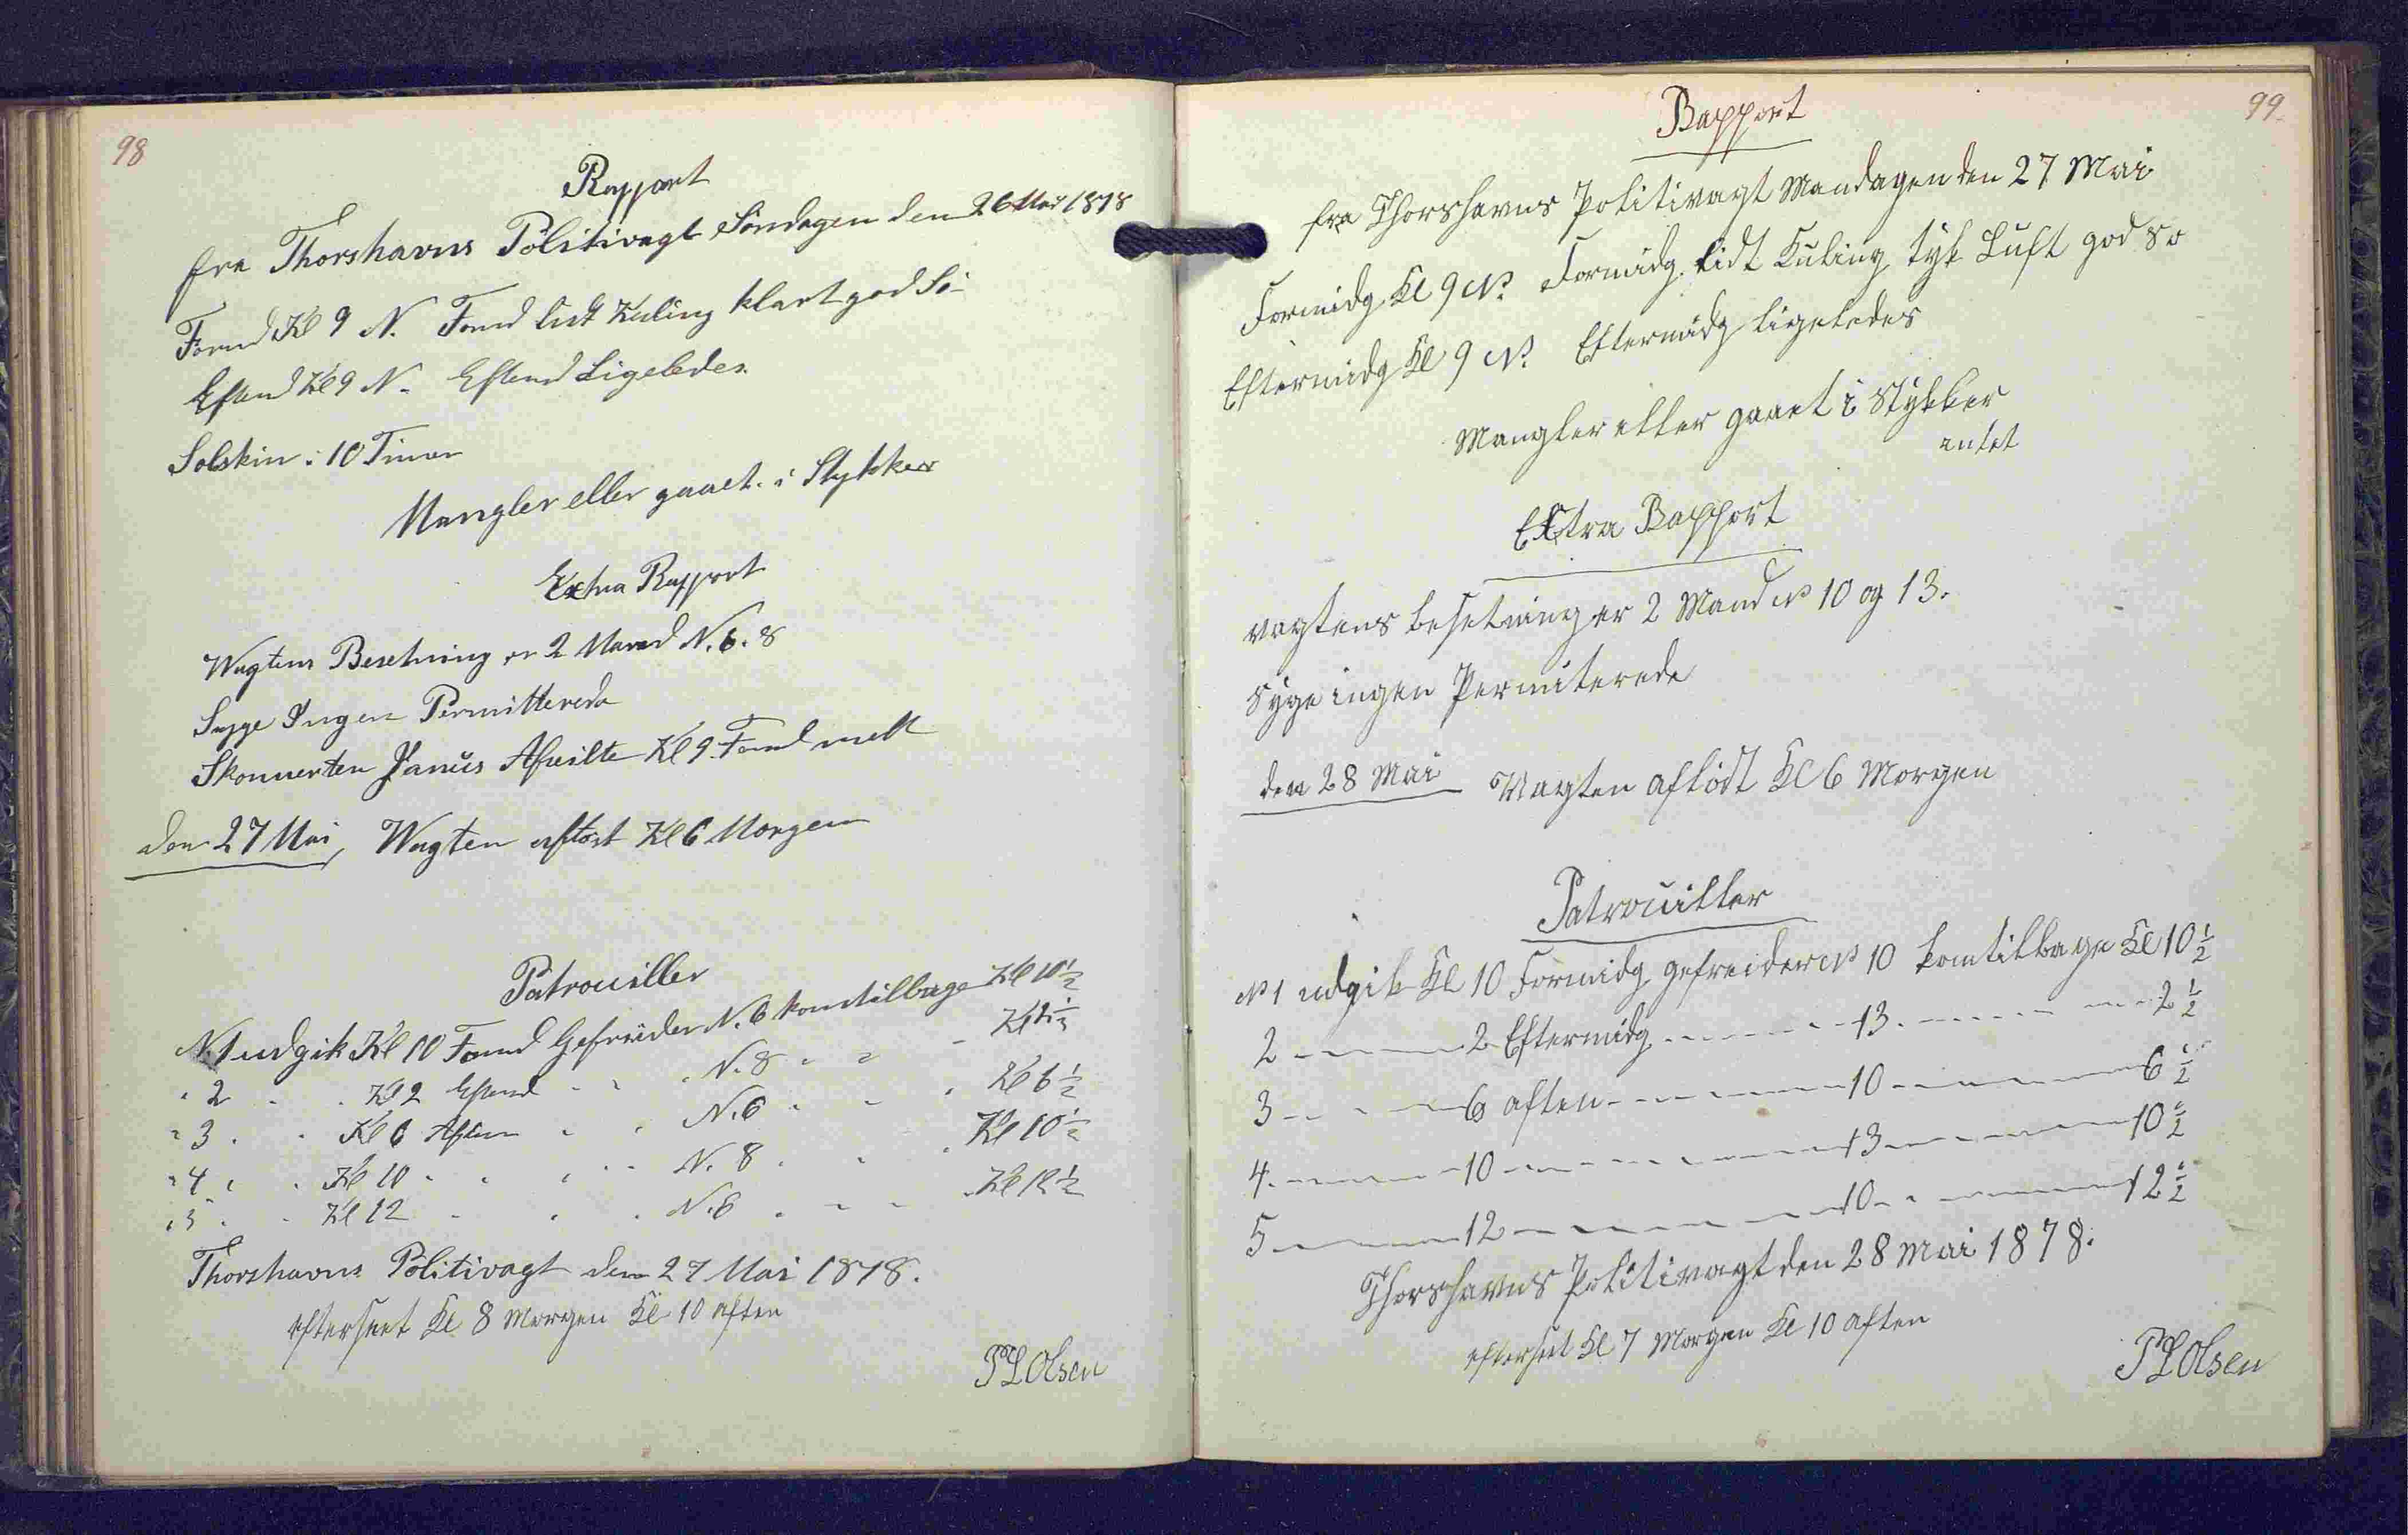 98
Rapport
fra Thorshavns Politivagt Söndagen den 26 Mai 1878
Formd Kl 9 N. Formd lidt Kuling klart god Sö
Eftmd Kl 9 N. Eftmd Ligeledes
Solskin i 10 Timer
Mangler eller gaaet i Stykker
Extra Rapport
Wagtens Besetning er 2 Mand N. 6. 8
Syge Ingen Permitterede
Skonnerten Janus Afseilte Kl 9 Formd
den 27 Mai, Wagten aflöst Kl 6 Morgen
Patrouiller
N. 1 udgik Kl 10 Formd Gefreider N. 6 kom tilbage Kl 10 1/2
" 2 " " Kl 2 Eftmd " " " N. 8 " " " Kl 2 1/2
" 3 " " Kl 6 Aften " " N. 6 " " " Kl 6 1/2
" 4 " " Kl 10 " " " " N. 8 " " " Kl 10 1/2
" 5 " " Kl 12 " " " N. 6 " " " Kl 12 1/2
Thorshavns Politivagt den 27 Mai 1878.
efterseet Kl 8 Morgen Kl 10 aften
P L Olsen
99.
Rapport
fra Thorshavns Politivagt Mandagen den 27 Mai
Formidg Kl 9 N. Formidg. lidt Kuling tyk Luft god So
Eftermidg Kl 9 N. Eftermidg ligeledes
Mangler eller gaaet i Stykker
intet
Extra Rapport
vagtens besetning er 2 Mand N 10 og 13.
Syge ingen Permiterede
den 28 Mai Wagten aflödt Kl 6 Morgen
Patrouiller
N 1 udgik Kl 10 Formidg gefreider N 10 kom tilbage Kl 10 1/2
2 - - - - 2 Eftermidg - - - - 13 - - - - 2 1/2
3 - - - - 6 aften - - - - 10 - - - - 6 1/2
4 - - - - 10 - - - - 13 - - - - 10 1/2
5 - - - - 12 - - - - 10 - - - - 12 1/2
Thorshavns Politivagt den 28 Mai 1878.
efterset Kl 7 Morgen Kl 10 aften
P L Olsen